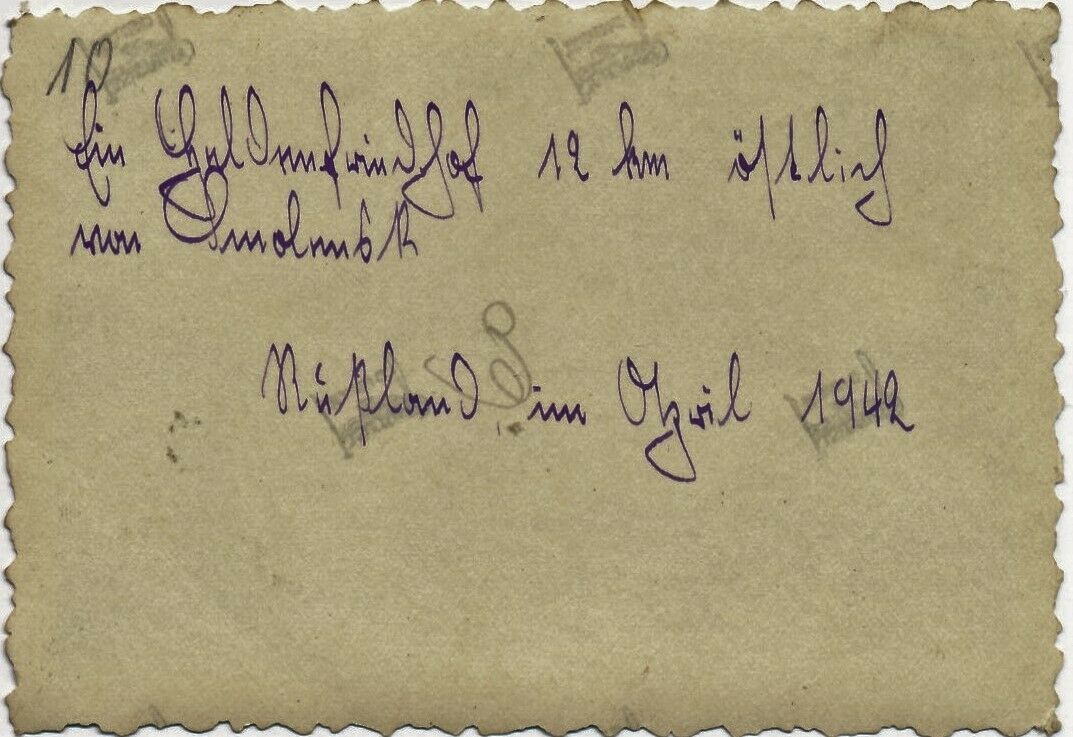 10
Ein Heldenfriedhof 12 km östlich
von Smolensk
Rußland, im April 1942